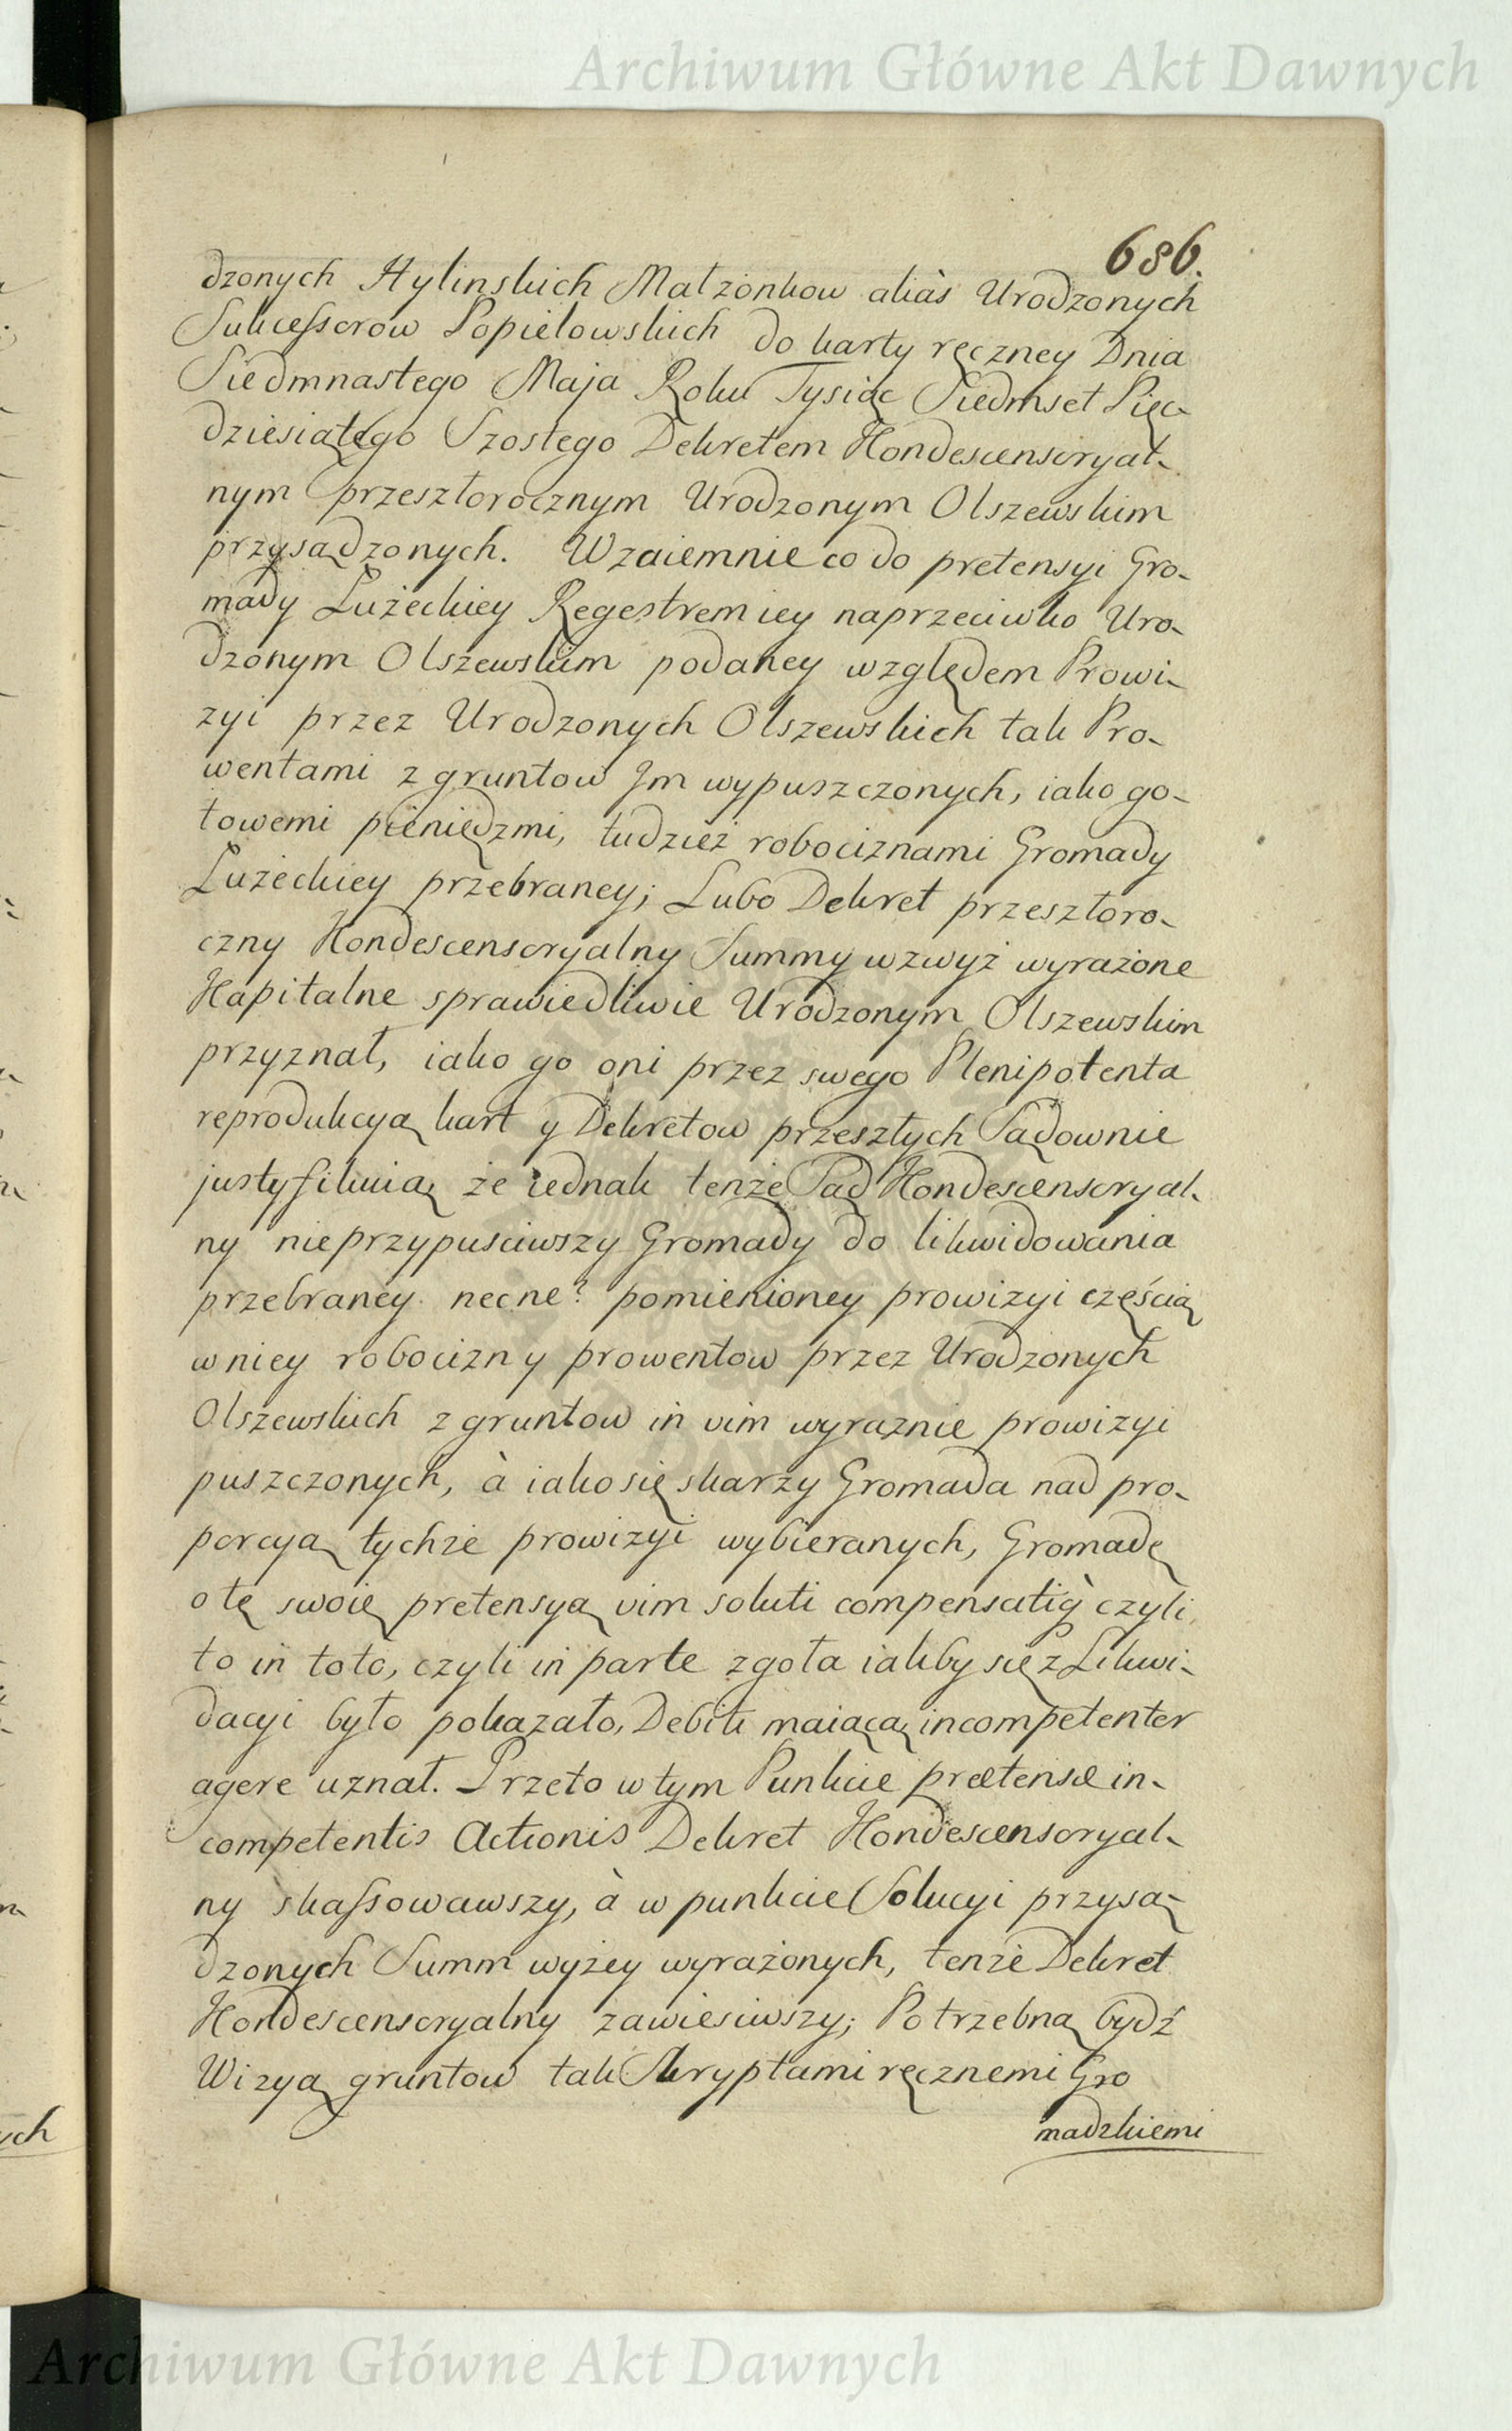 Archiwum Główne Akt Dawnych
686.
dzonych Hylinskich Małzonkow aliàs Urodzonych
Sukcessorow Popielowskich do karty ręczney Dnia
Siedmnastego Maja Roku Tysiąc Siedmset Pięc-
dziesiątego Szostego Dekretem Kondescensoryal-
nym przeszłorocznym Urodzonym Olszewskim
przysądzonych. Wzaiemnie co do pretensyi Gro-
mady Łużeckiey Regestrem iey naprzeciwko Uro-
dzonym Olszewskim podaney względem Prowi-
zyi przez Urodzonych Olszewskich tak Pro-
wentami z gruntow Im wypuszczonych, iako go-
towemi pieniędzmi, tudzież robociznami Gromady
Łużeckiey przebraney; Lubo Dekret przeszłoro-
czny Kondescensoryalny Summy wzwyż wyrażone
Kapitalne sprawiedliwie Urodzonym Olszewskim
przyznał, iako go oni przez swego Plenipotenta
reprodukcyą kart y Dekretow przeszłych Sądownie
justyfikuią, że iednak tenże Sąd Kondescensoryal-
ny nieprzypusciwszy Gromady do likwidowania
przebraney necne? pomienioney prowizyi częścią
w niey robocizn y prowentow przez Urodzonych
Olszewskich z gruntow in vim wyraznie prowizyi
puszczonych, à iako się skarzy Gromada nad pro-
porcyą tychże prowizyi wybieranych, Gromadę
o tę swoię pretensyą vim soluti compensatiq̀ czyli
to in toto, czyli in parte zgoła iakby się z Likwi-
dacyi było pokazało, Debiti maiącą, incompetenter
agere uznał. Przeto w tym Punkcie prætensæ in-
competentis Actionis Dekret Kondescensoryal-
ny skassowawszy, à w punkcie Solucyi przysą-
dzonych Summ wyżey wyrażonych, tenże Dekret
Kondescensoryalny zawiesiwszy; Potrzebną bydź
Wizyą gruntow tak Skryptami ręcznemi Gro
madzkiemi
ych
Archiwum Główne Akt Dawnych